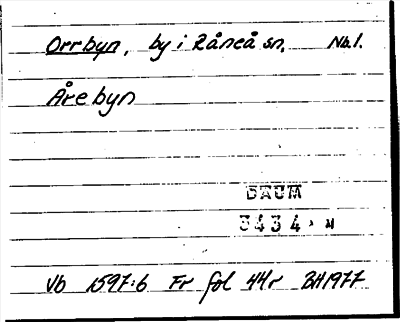 Orrbyn, by i Råneå sn, Nb.l.
Årebyn
DAUM
3434 M
Vb 1597:6 Fr fol 44r BH1977